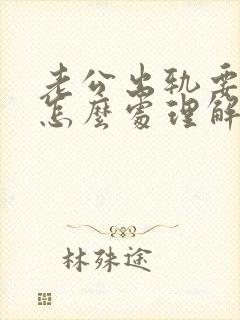 老公出轨要
怎麼處理解
林殊途